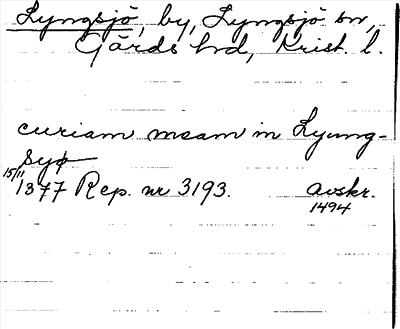 Lyngsjö, by, Lyngsjö sn,
Gärds hd, Krist. l.
curiam meam in Lyung-
syø
15/11 1377 Rep. nr 3193. avskr. 1494